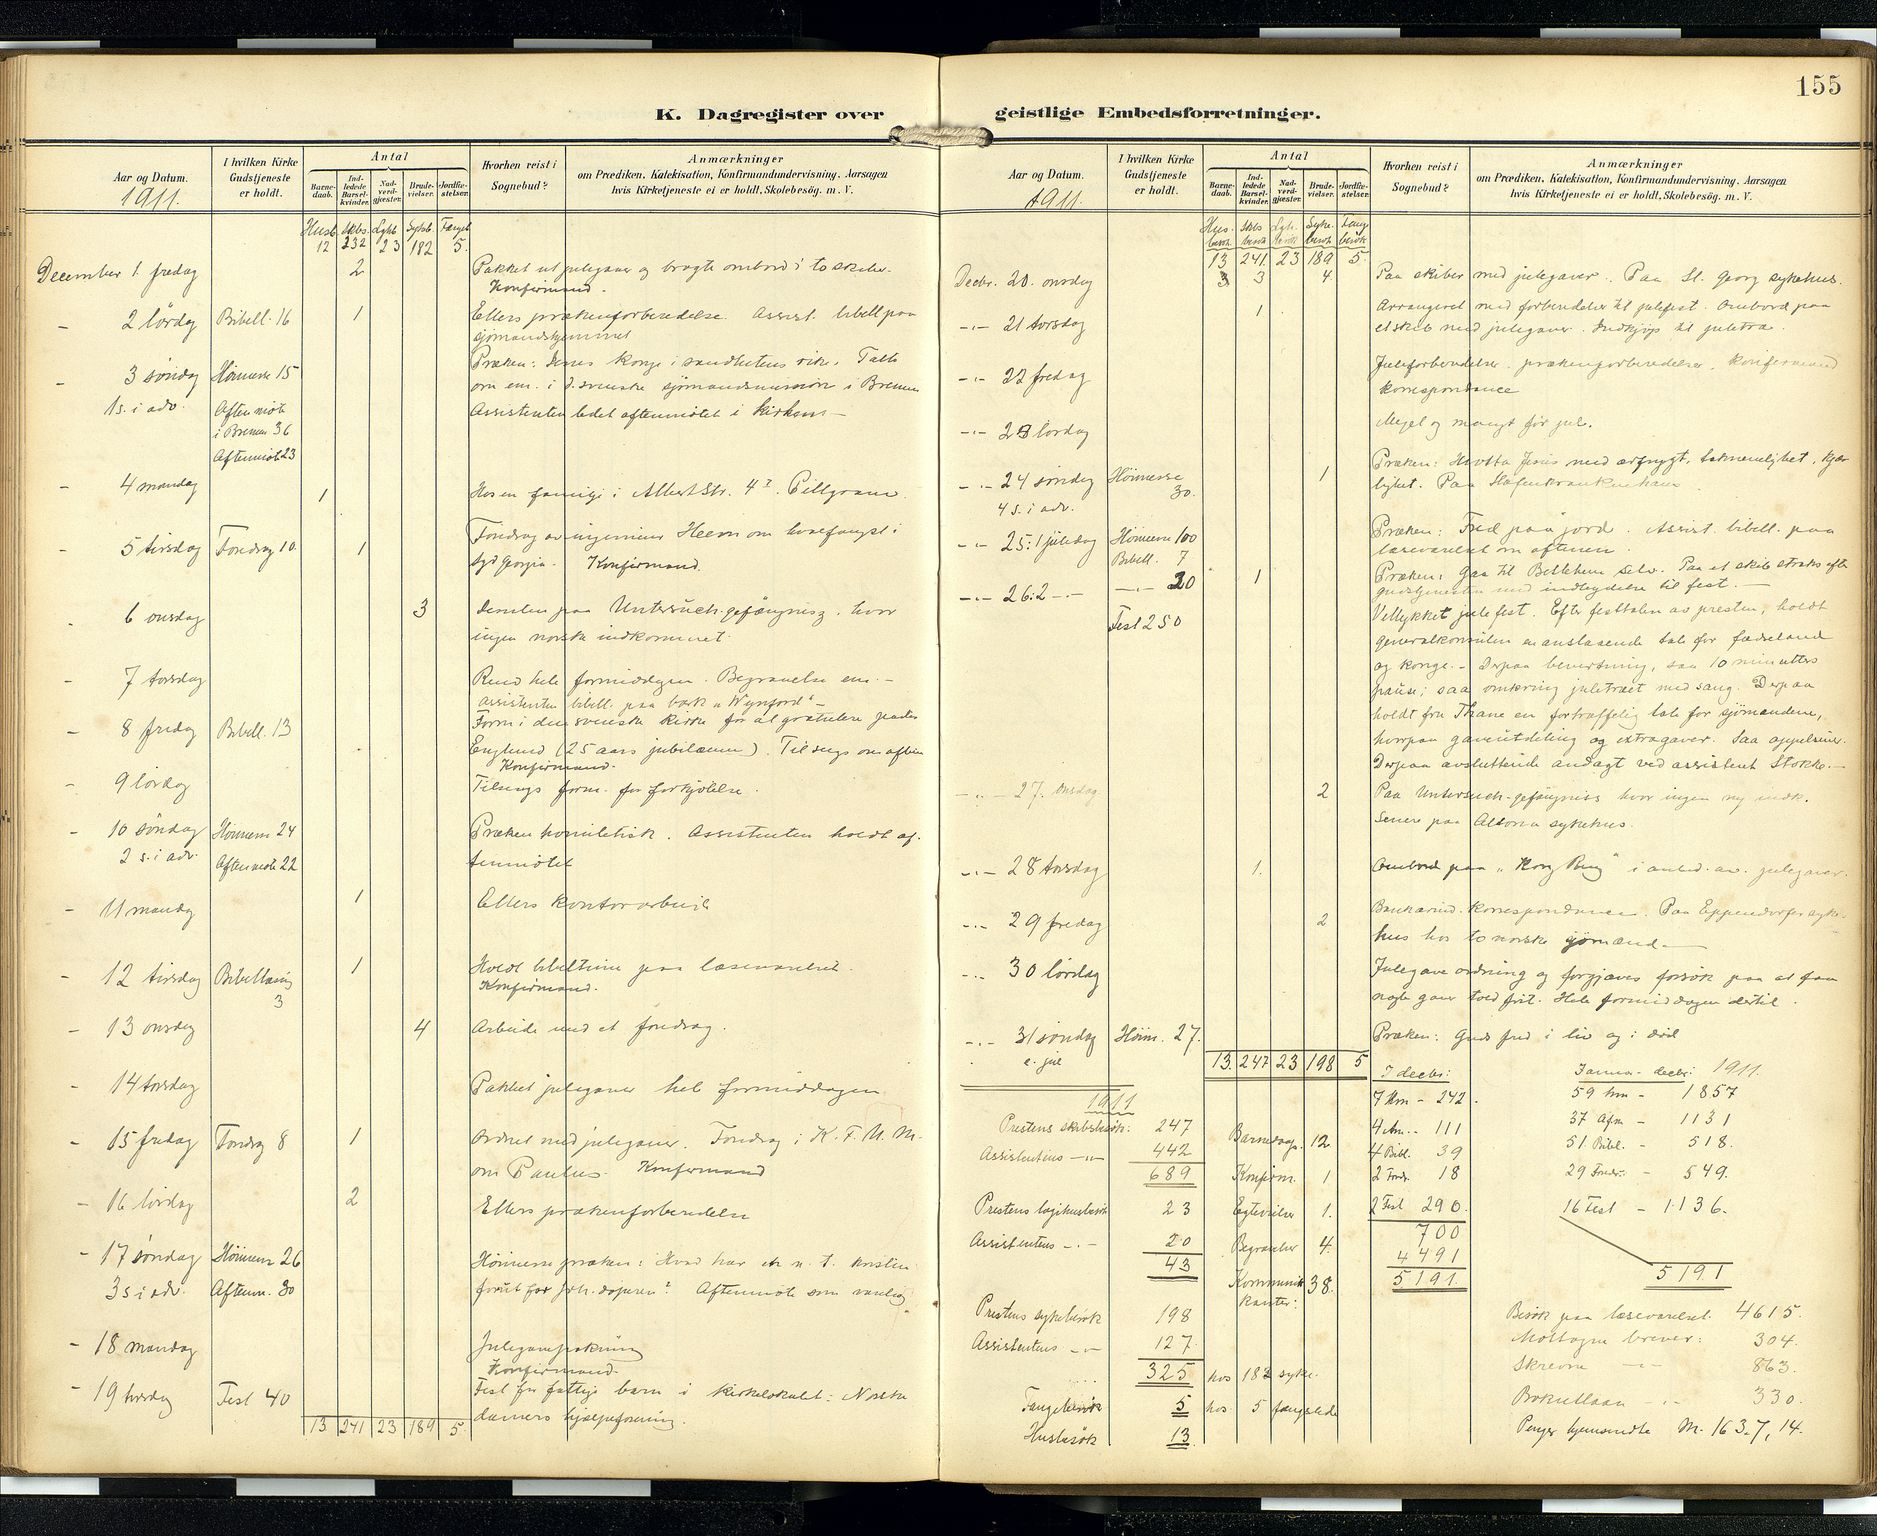 155
K. Dagregister over geistlige Embedsforretninger.
Aar og Datum.
1911.
I hvilken Kirke Gudstjeneste er holdt.
Antal
Barnedaab.
Indledede Barselkvinder.
Nadverdgjæster.
Brudevielser.
Jordfæstelser.
Hvorhen reist i Sognebud?
Anmærkninger
om Prædiken, Katekisation, Konfirmandundervisning, Aarsagen
hvis Kirketjeneste ei er holdt, Skolebesøg. m. V.
Husb. Skbs. Lghb. Sykb. Fængb.
12 232 23 182 5.
December 1. fredag 2 Pakket ut julegaver og bragte ombord i to skibe.
Konfirmand.
- 2 lördag Bibell. 16 1 Ellers prækenforberedelse. Assist. bibell paa
sjömandshjemmet
- 3 söndag Höimesse 15 Præken: Jesus konge i sandhetens rike. Talte
1 s. i adv. Aftenmöte om em. i d. svenske sjömandsmission i Bremen
i Bremen 36 Assistenten ledet aftenmötet i kirken -
Aftenmöte 23
- 4 mandag 1 Hos en familje i Albert Str. 4 Pillgram.
- 5 tirsdag Foredrag 10 1 Foredrag av ingeniör om hvalfangst i
syd Georgia. Konfirmand.
- 6 onsdag 3 Desuten paa Untersuch. gefängnisz. hvor
ingen norske indkommet.
- 7 torsdag Rend hele formiddagen. Begravelse em. -
assistenten bibell. paa bark "Wynford" -
- 8 fredag Bibell. 13 Form. i den svenske kirke for at gratulere pastor
Englund (25 aars jubilæum). Tilsengs om aften
Konfirmand.
- 9 lördag Tilsengs form. for forkjölelse.
- 10 söndag Höimesse 24 Præken homiletisk. Assistenten holdt af-
2 s. i adv. Aftenmöte 22 tenmötet
- 11 mandag 1 Ellers kontorarbeide
- 12 tirsdag Bibellæsning 3 1 Holdt bibeltime paa læseværelset.
Konfirmand.
- 13 onsdag 4 Arbeide med et foredrag.
- 14 torsdag Pakket julegaver hele formiddagen
- 15 fredag Foredrag 8 1 Ordnet med julegaver. Foredrag i K. F. U. M.
om Paulus. Konfirmand
- 16 lördag 2 Ellers prækenforberedelse
- 17 söndag Höimesse 26 Höimessepræken: Hvad har en n. t. kristen
3 s i adv. Aftenm. 30 forut for Joh. döperen? Aftenmöte som vanlig.
- 18 mandag Julegavepakning
Konfirmand.
- 19 tirsdag Fest 40 Fest for fattige barn i kirkelokalet: Norske
13 241 23 189 5. damers hjælpeforening.
Aar og Datum.
1911.
I hvilken Kirke Gudstjeneste er holdt.
Antal
Barnedaab.
Indledede Barselkvinder.
Nadverdgjæster.
Brudevielser.
Jordfæstelser.
Hvorhen reist i Sognebud?
Anmærkninger
om Prædiken, Katekisation, Konfirmandundervisning, Aarsagen
hvis Kirketjeneste ei er holdt, Skolebesøg. m. V.
Husbesök Skbsbesök Lghbesök Sykebesök Fangbesök
13 241. 23 189 5
Decbr. 20. onsdag 3 3 4. Paa skiber med julegaver. Paa St. Georg sykehus.
-"- 21 torsdag 1 Arrangeret med forberedelser til julefest. Ombord paa
et skib med julegaver. Indkjöp til juletræ.
-"- 22 fredag Juleforberedelser, prækenforberedelser, konfirmand
korrespondance
-"- 23 lördag Meget og mangt för jul.
-"- 24 söndag Höimesse 30. 1 Præken: Motta Jesus med ærfrygt, taknemlighet, kjær-
4 s. i adv. lighet. Paa Hafenkrankenhaus
-"- 25: 1 juledag Höimesse 100 Præken: Fred paa jord. Assist bibell. paa
Bibell. 7 læseværelset om aftenen.
-"- 26: 2 -"- -"- 20 1 Præken: Gaa til Betlehem selv. Paa et skib straks efter
gudstjenesten med indbydelse til fest. -
Fest 250 Vellykket julefest. Efter festtalen av presten, holdt
generalkonsulen en anslaaende tale for fædreland
og konge. - Derpaa bevertning, saa 10 minutters
pause; saa omkring juletræet med sang. Derpaa
holdt fru Thane en fortræffelig tale for sjömændene,
hvorpaa gaveutdeling og extragaver. Saa appelsiner.
Derpaa avsluttende andagt ved assistent Stokke. -
-"- 27. onsdag 2 Paa Untersuch. gefängniss hvor ingen ny indk.
Senere paa Altona sykehus.
-"- 28 torsdag 1. Ombord paa "Kong Ring" i anled. av. julegaver.
-"- 29 fredag 2 Bankærind. korrespondance. Paa Eppendorfer syke-
hus hos to norske sjömænd -
-"- 30 lördag Julegaveordning og forgjæves forsök paa at faa
nogle gaver toldfrit. Hele formiddagen dertil.
-"- 31 söndag Höim. 27. Præken: Guds fred i liv og i död
e. jul 13. 247 23 198 5
1911
Prestens skibsbesök: 247
Assistentens -"- 442
689
Prestens logihusbesök 23
Assistentens -"- 20
43
Prestens sykebesök 198
Assistentens -"- 127
325 hos 182 syke.
Fangebesök 5 hos 5 fængslede
Husbesök 13
Barnedaap. 12.
Konfirm. 1
Egtevielser 1.
Begravelser 4.
Kommunikanter: 38.
I decbr:
7 Hm - 242
4 Am. - 111
4 Bibl. 39
2 Fordr. 18
2 Fest 290.
700
4491
5191.
Januar - decbr: 1911.
59 hm - 1857
37 Afm - 1131
51 Bibl. - 518.
29 Fordr: - 549.
16 Fest - 1136.
5191
Besök paa læseværelset. 4615.
Mottagne brever: 304.
Skrevne -"- 863.
Bokutlaan -"- 330.
Penger hjemsendte M. 1637,14.